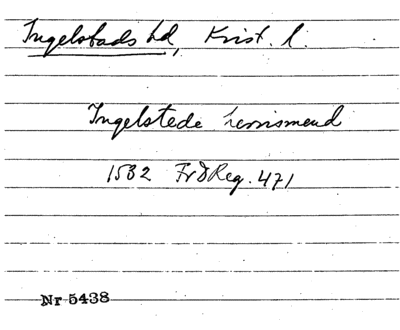 Ingelstads hd, Krist. l.
Ingelstede herrismend
1532 FrdReg. 471
Nr 5438